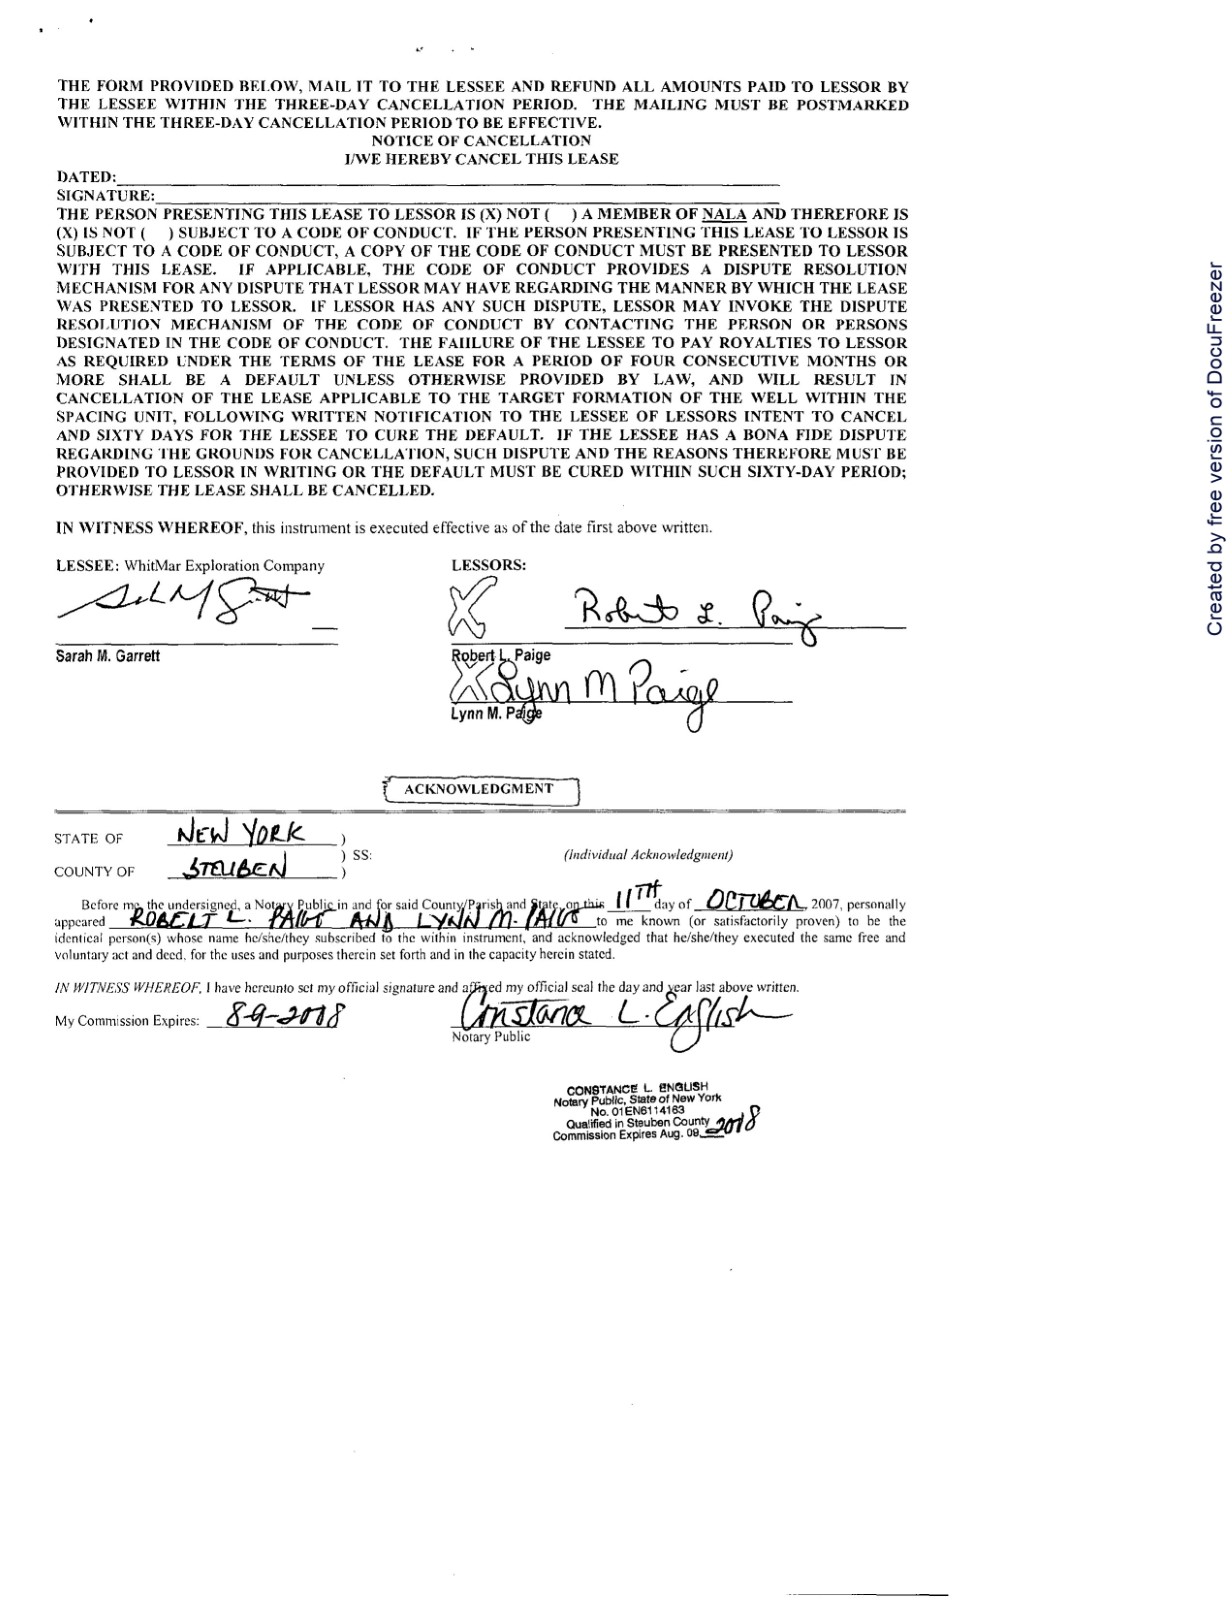 THE FORM PROVIDED BELOW, MAIL IT TO THE LESSEE AND REFUND ALL AMOUNTS PAID TO LESSOR BY
THE LESSEE WITHIN THE THREE-DAY CANCELLATION PERIOD. THE MAILING MUST BE POSTMARKED
WITHIN THE THREE-DAY CANCELLATION PERIOD TO BE EFFECTIVE.
NOTICE OF CANCELLATION
I/WE HEREBY CANCEL THIS LEASE
DATED:
SIGNATURE:
THE PERSON PRESENTING THIS LEASE TO LESSOR IS (X) NOT ( ) A MEMBER OF NALA AND THEREFORE IS
(X) IS NOT ( ) SUBJECT TO A CODE OF CONDUCT. IF THE PERSON PRESENTING THIS LEASE TO LESSOR IS
SUBJECT TO A CODE OF CONDUCT, A COPY OF THE CODE OF CONDUCT MUST BE PRESENTED TO LESSOR
WITH THIS LEASE. IF APPLICABLE, THE CODE OF CONDUCT PROVIDES A DISPUTE RESOLUTION
MECHANISM FOR ANY DISPUTE THAT LESSOR MAY HAVE REGARDING THE MANNER BY WHICH THE LEASE
WAS PRESENTED TO LESSOR. IF LESSOR HAS ANY SUCH DISPUTE, LESSOR MAY INVOKE THE DISPUTE
RESOLUTION MECHANISM OF THE CODE OF CONDUCT BY CONTACTING THE PERSON OR PERSONS
DESIGNATED IN THE CODE OF CONDUCT. THE FAILURE OF THE LESSEE TO PAY ROYALTIES TO LESSOR
AS REQUIRED UNDER THE TERMS OF THE LEASE FOR A PERIOD OF FOUR CONSECUTIVE MONTHS OR
MORE SHALL BE A DEFAULT UNLESS OTHERWISE PROVIDED BY LAW, AND WILL RESULT IN
CANCELLATION OF THE LEASE APPLICABLE TO THE TARGET FORMATION OF THE WELL WITHIN THE
SPACING UNIT, FOLLOWING WRITTEN NOTIFICATION TO THE LESSEE OF LESSORS INTENT TO CANCEL
AND SIXTY DAYS FOR THE LESSEE TO CURE THE DEFAULT. IF THE LESSEE HAS A BONA FIDE DISPUTE
REGARDING THE GROUNDS FOR CANCELLATION, SUCH DISPUTE AND THE REASONS THEREFORE MUST BE
PROVIDED TO LESSOR IN WRITING OR THE DEFAULT MUST BE CURED WITHIN SUCH SIXTY-DAY PERIOD;
OTHERWISE THE LEASE SHALL BE CANCELLED.
IN WITNESS WHEREOF, this instrument is executed effective as of the date first above written.
LESSEE: WhitMar Exploration Company
LESSORS:
X Robert L. Paige
Sarah M. Garrett
Robert L. Paige
X Lynn M Paige
Lynn M. Paige
ACKNOWLEDGMENT
STATE OF NEW YORK )
) SS: (Individual Acknowledgment)
COUNTY OF STEUBEN )
Before me, the undersigned, a Notary Public in and for said County/Parish and State, on this 11TH day of OCTOBER, 2007, personally
appeared ROBERT L. PAIGE AND LYNN M. PAIGE to me known (or satisfactorily proven) to be the
identical person(s) whose name he/she/they subscribed to the within instrument, and acknowledged that he/she/they executed the same free and
voluntary act and deed, for the uses and purposes therein set forth and in the capacity herein stated.
IN WITNESS WHEREOF, I have hereunto set my official signature and affixed my official seal the day and year last above written.
My Commission Expires: 8-9-2008
Constance L. English
Notary Public
CONSTANCE L. ENGLISH
Notary Public, State of New York
No. 01EN6114163
Qualified in Steuben County
Commission Expires Aug. 09, 2008
Created by free version of DocuFreezer